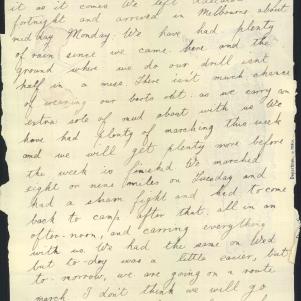 it as it comes We left
fortnight and arrived in Melbourne about
mid day Monday. We have had plenty
of rain since we came here and the
ground where we do our drill isnt
half in a mess. There isn't much chance
of wearing our boots out. as we carry an
extra sole of mud about with us We
have had plenty of marching this week
and we will get plenty more before
the week is finished We marched
eight or nine miles on Tuesday and
had a sham fight and had to come
back to camp after that. all in an
after-noon, and carring everything
with us. We had the same on Wed
but to-day was a little easier, but
to-morrow, we are going on a route
march I don't think we will go